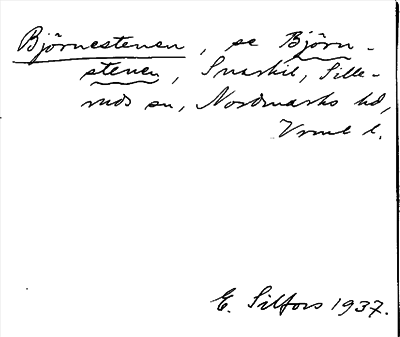 Björnestenen, se Björn-
stenen, Snarkil, Sille-
ruds sn, Nordmarks hd,
Vrml l.
E. Silfors 1937.